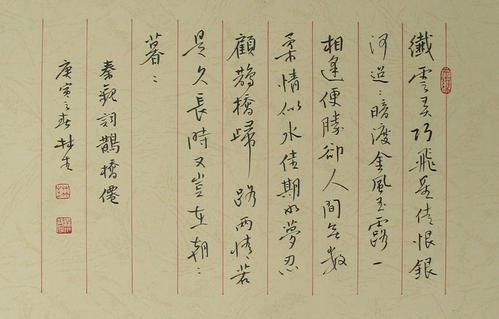 纖雲弄巧飛星傳恨銀
河迢:暗渡金風玉露一
相逢便勝卻人間無數
柔情似水佳期如夢忍
顧鵲橋歸路兩情若
是久長時又豈在朝:
暮:
秦觀詞鵲橋僊
庚寅之春林